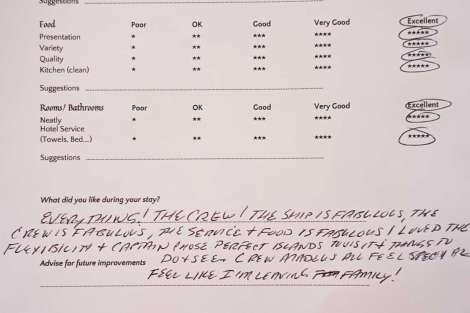 Suggestions
Food Poor OK Good Very Good Excellent
Presentation * ** *** **** *****
Variety * ** *** **** *****
Quality * ** *** **** *****
Kitchen (clean) * ** *** **** *****
Suggestions
Rooms/ Bathrooms Poor OK Good Very Good Excellent
Neatly * ** *** **** *****
Hotel Service
(Towels, Bed...) * ** *** **** *****
Suggestions
What did you like during your stay?
EVERYTHING! THE CREW! THE SHIP IS FABULOUS, THE
CREW IS FABULOUS, THE SERVICE + FOOD IS FABULOUS I LOVED THE
FLEXIBILITY + CAPTAIN CHOSE PERFECT ISLANDS TO VISIT + THINGS TO
Advise for future improvements DO + SEE. CREW MADE US ALL FEEL SPECIAL
FEEL LIKE I'M LEAVING FAMILY!